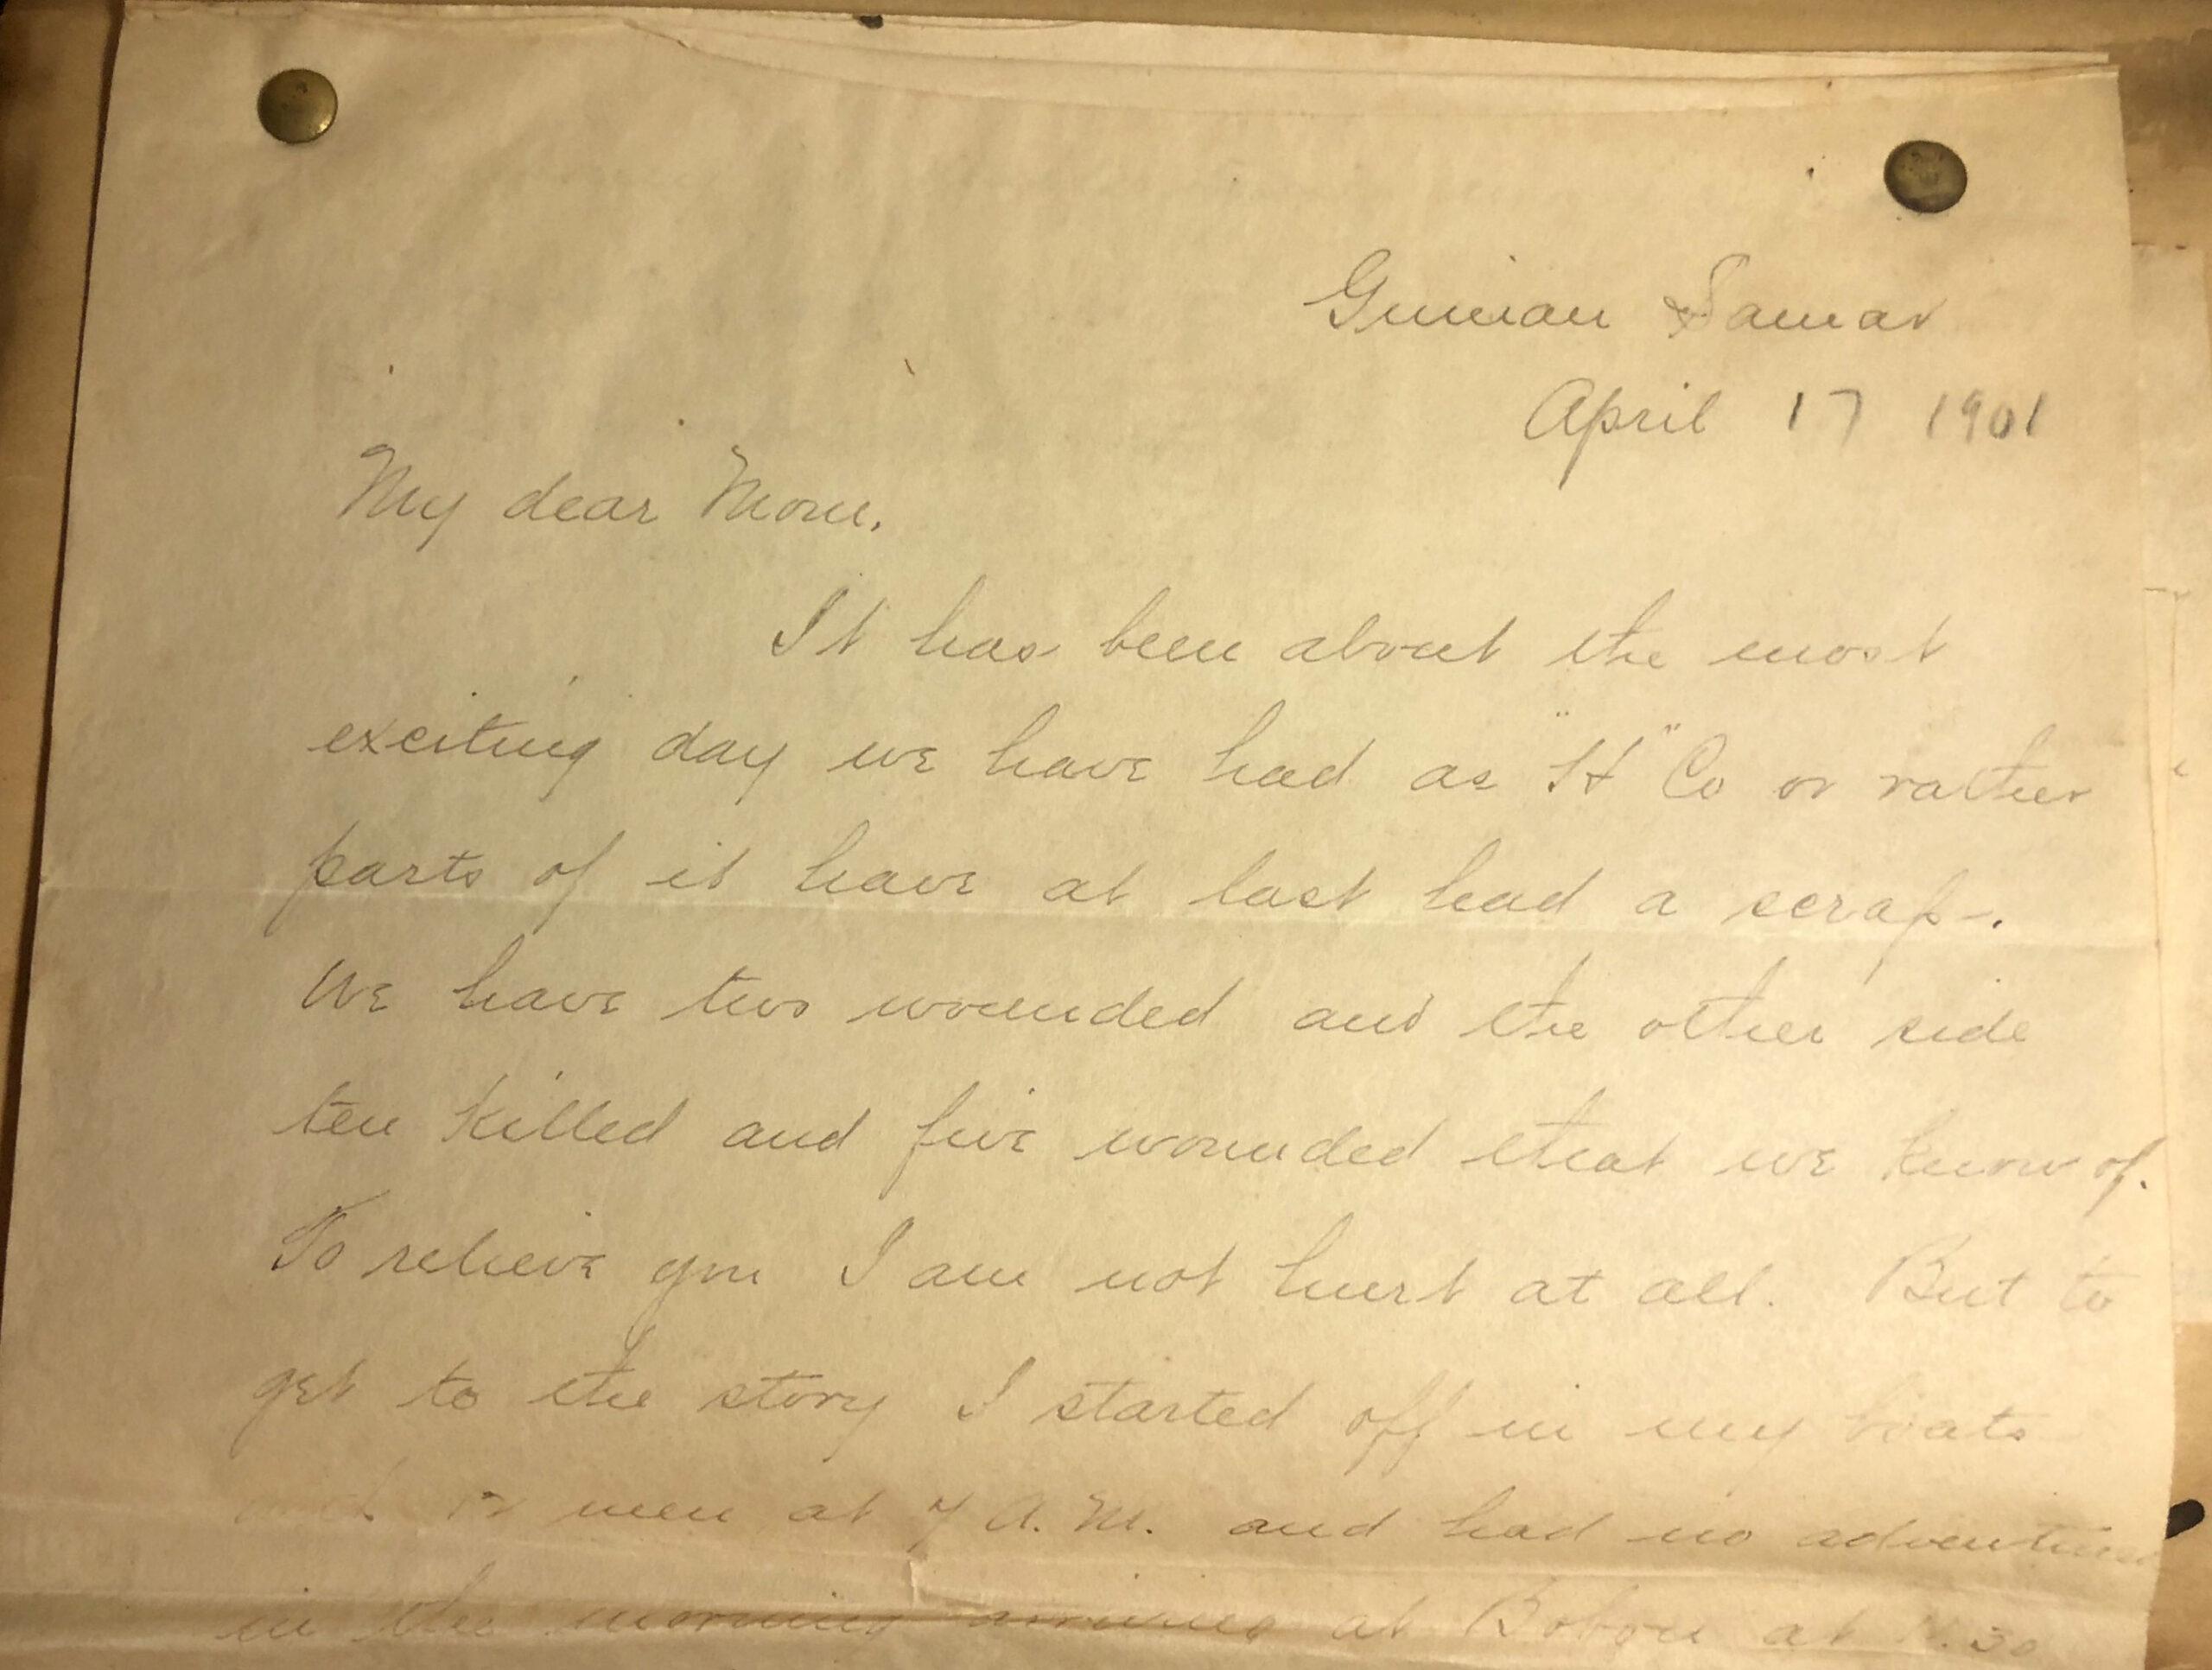 Guiuan Samar
April 17 1901
My dear Mom,
It has been about the most
exciting day we have had as "H" Co or rather
parts of it have at last had a scrap.
We have two wounded and the other side
ten killed and five wounded that we know of.
To relieve you I am not hurt at all. But to
get to the story I started off in my boats
and 12 men at 7 A.M. and had no adventures
in the morning arriving at Bobon at